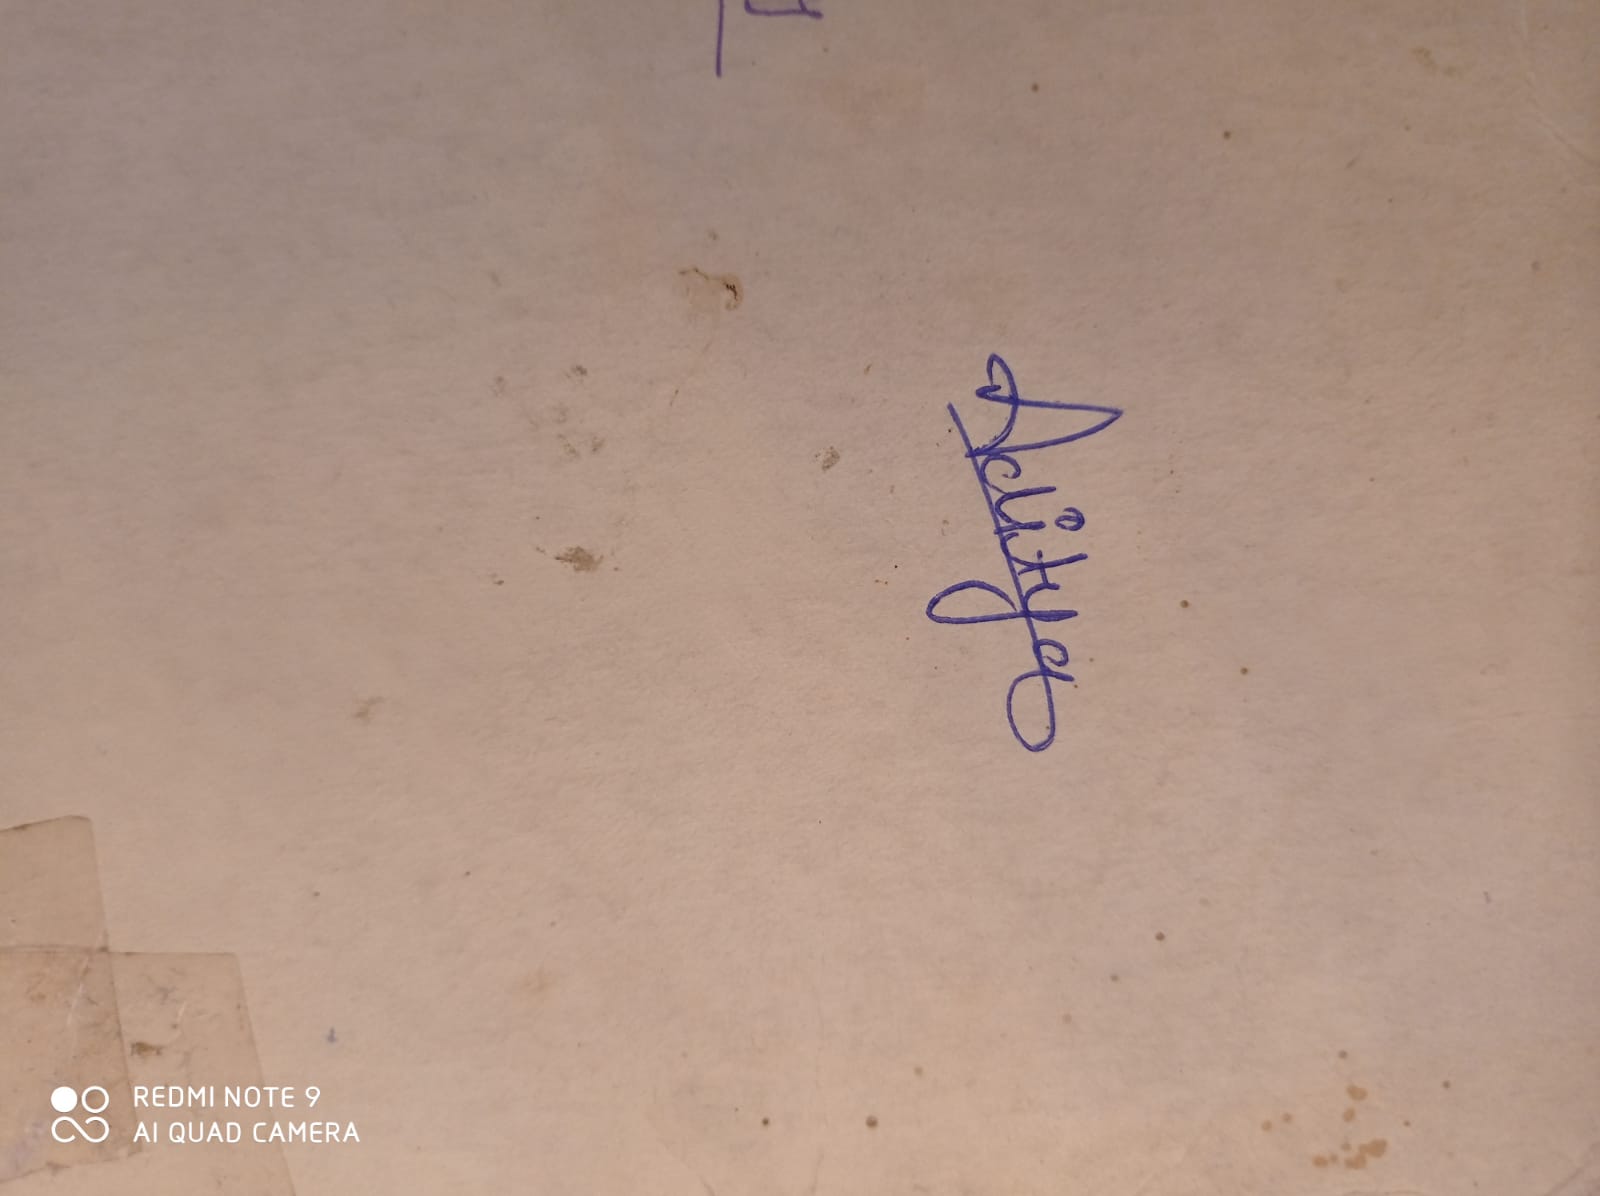 Aditya
REDMI NOTE 9
AI QUAD CAMERA